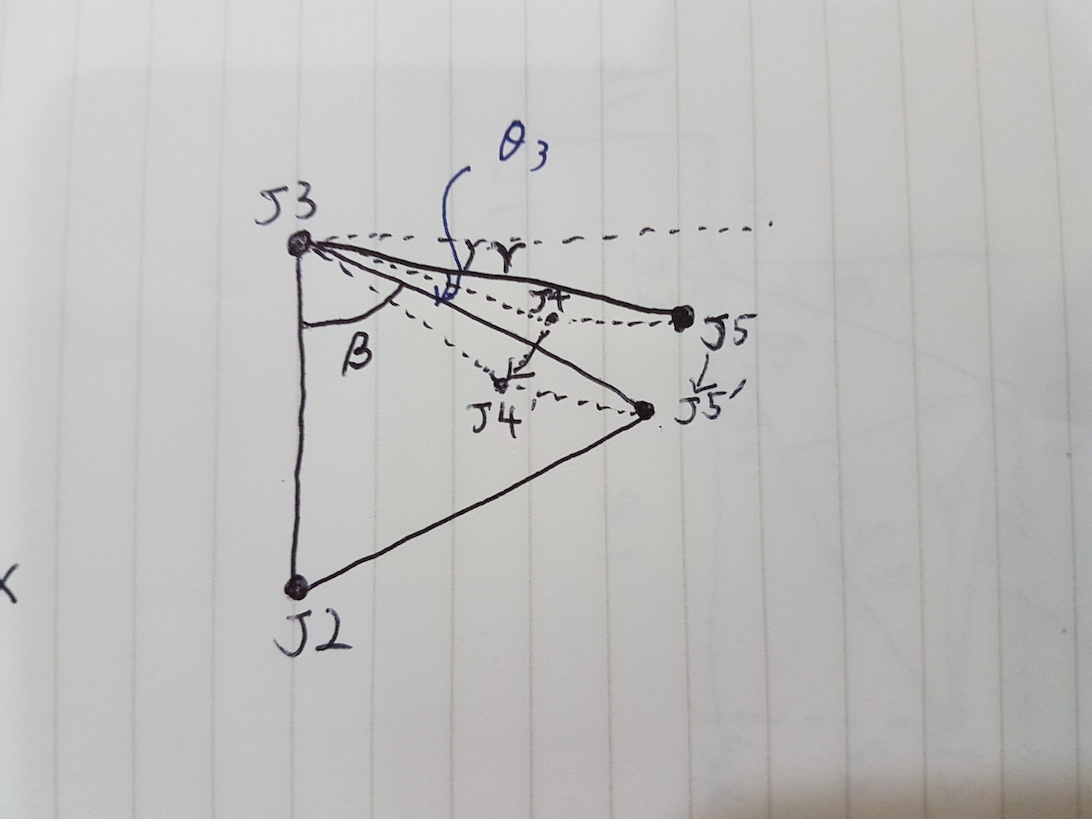 θ3
J3
γ
J4
J5
β
J4'
J5'
J2